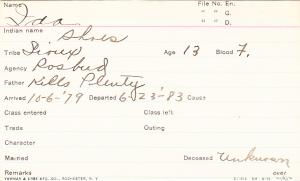 Name File No. En.
Ida " " G.
Indian name " " D.
Shoes
Tribe Sioux Age 13 Blood F.
Agency Rosbud
Father Kills Plenty
Arrived 10-6-'79 Departed 6-23-'83 Cause
Class entered Class left
Trade Outing
Character
Married Deceased Unknown
Remarks over